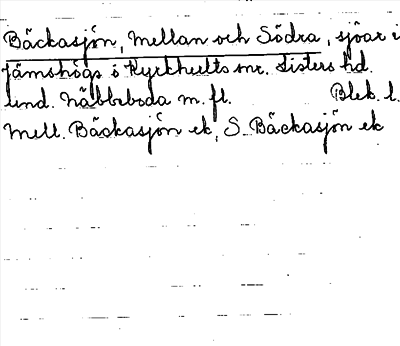 Bäckasjön, Mellan och Södra, sjöar i
Jämshögs o Kyrkhults snr. Listers hd.
und. Näbbeboda m. fl. Blek. l.
Mell. Bäckasjön ek, S. Bäckasjön ek